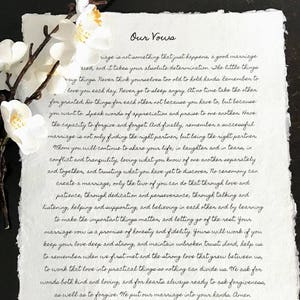 Our Vows
iage is not something that just happens, a good marriage
eed, and it takes your absolute determination. The little things
big things. Never think yourselves too old to hold hands. Remember to
love you each day. Never go to sleep angry. At no time take the other
for granted. Do things for each other not because you have to, but because
you want to. Speak words of appreciation and praise to one another. Have
the capacity to forgive and forget. And finally, remember, a successful
marriage is not only finding the right partner, but being the right partner.
Whom you will continue to share your life, in laughter and in tears, in
conflict and tranquility, loving what you know of one another separately
and together, and trusting what you have yet to discover. No ceremony can
create a marriage, only the two of you can do that through love and
patience, through dedication and perseverance, through talking and
listening, helping and supporting, and believing in each other and by learning
to make the important things matter, and letting go of the rest. Your
marriage vow is a promise of honesty and fidelity. Yours will work if you
keep your love deep and strong, and maintain unbroken trust. Lord, help us
to remember when we first met and the strong love that grew between us,
to work that love into practical things so nothing can divide us. We ask for
words both kind and loving, and for hearts always ready to ask forgiveness,
as well as to forgive. We put our marriage into your hands. Amen.